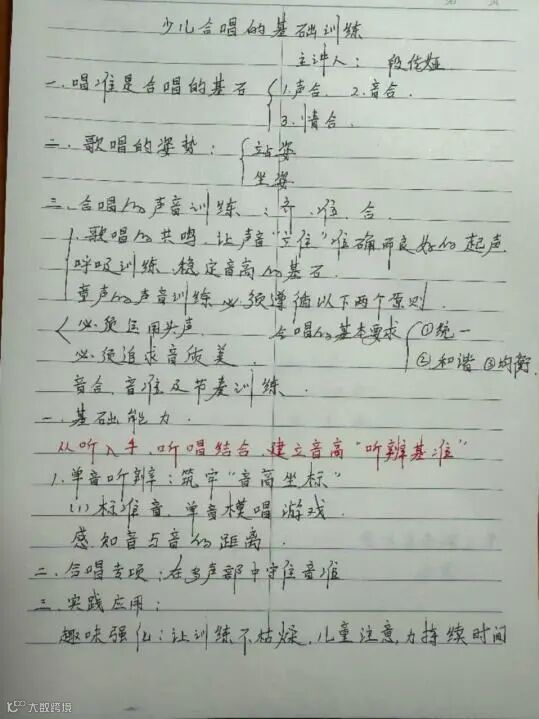 少儿合唱的基础训练
主讲人：段
一.唱准是合唱的基石 1.声合. 2.音合.
3.情合.
二.歌唱的姿势： 站姿
坐姿
三.合唱的声音训练：齐.准.合.
1.歌唱的共鸣.让声音“立住”准确而良好的起声
呼吸训练.稳定音高的基石.
童声的声音训练必须遵循以下两个原则.
必须运用头声. 合唱的基本要求 ①统一
必须追求音质美. ②和谐 ③均衡.
音合.音准及节奏训练.
一.基础能力.
从听入手.听唱结合.建立音高“听辨基准”
1.单音听辨：筑牢“音高坐标”
(1)标准音.单音模唱游戏.
感知音与音的距离.
二.合唱专项：在多声部中守住音准
三.实践应用：
趣味强化：让训练不枯燥.儿童注意力持续时间
大数跨境